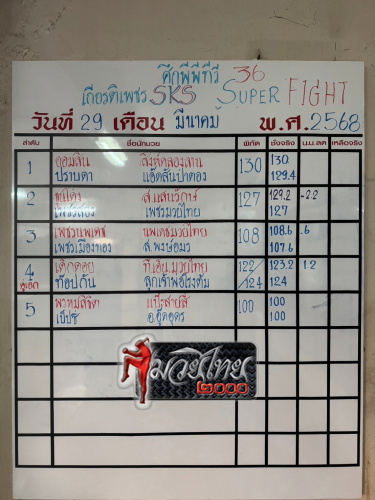 ศึกพีพีทีวี 36
เกียรติเพชร SKS SUPER FIGHT
วันที่ 29 เดือน มีนาคม พ.ศ. 2568
ลำดับ ชื่อนักมวย พิกัด ชั่งจริง น.น.ลด เหลือจริง
1 ออมสิน สิงห์คลองลาน 130 130
ปราบดา แอ๊ดสันป่าตอง 129.4
2 ส.สมานรักษ์ 127 129.2 -2.2
เพชรมวยไทย 127
3 นพเดชมวยไทย 108 108.6 .6
เพชรเมืองทอง ส.พงษ์อมร 107.6
4 เด็กดอย ที.เอ็น.มวยไทย 122 123.2 1.2
คู่เอก ท้อปกัน ลูกเจ้าพ่อโรงต้ม /124 124
5 100 100
เป๊ปซี่ อ.อุดอุดร 100
มวยไทย
๒๐๐๐